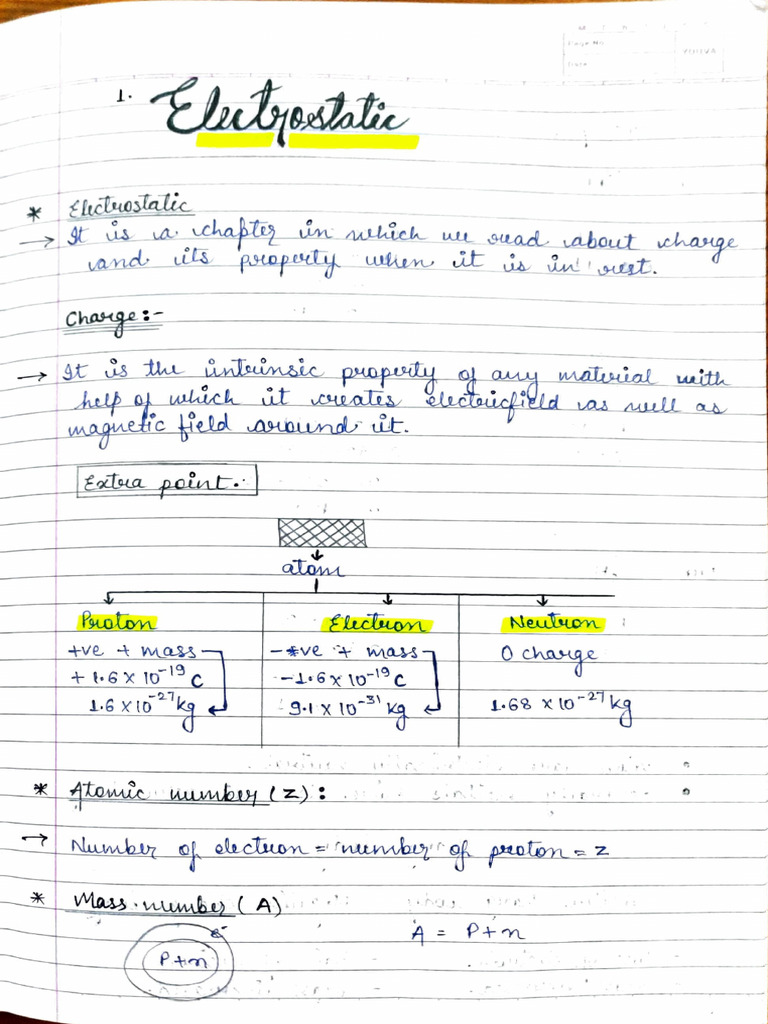 Page No.
Date
YOUVA
1. Electrostatic
* Electrostatic
→ It is a chapter in which we read about charge
and its property when it is in rest.
Charge:-
→ It is the intrinsic property of any material with
help of which it creates electricfield as well as
magnetic field around it.
Extra point.
atom
Proton Electron Neutron
+ve + mass -ve + mass 0 charge
+1.6 × 10⁻¹⁹ C -1.6 × 10⁻¹⁹ C
1.6 × 10⁻²⁷ kg 9.1 × 10⁻³¹ kg 1.68 × 10⁻²⁷ kg
* Atomic number (Z):
→ Number of electron = number of proton = Z
* Mass number (A)
e⁻
A = P+n
P+n